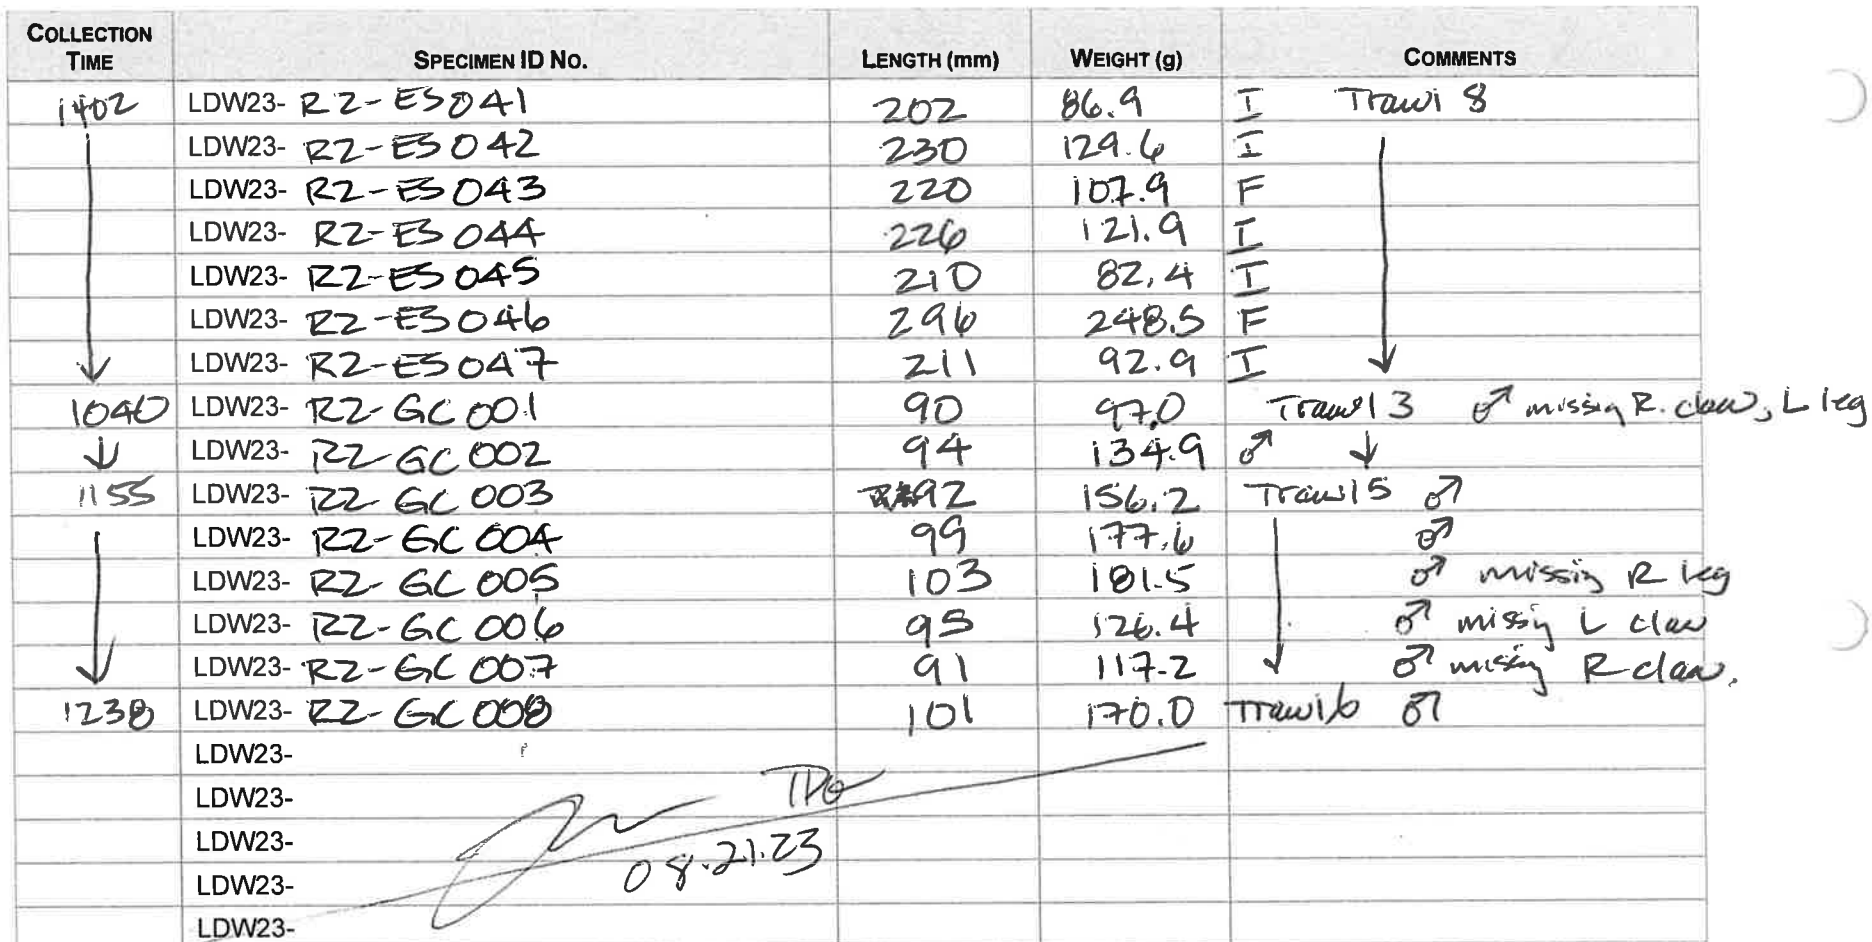 COLLECTION TIME SPECIMEN ID NO. LENGTH (mm) WEIGHT (g) COMMENTS
1402 LDW23- R2-ES041 202 86.9 I Trawl 8
LDW23- R2-ES042 230 129.6 I
LDW23- R2-ES043 220 107.9 F
LDW23- R2-ES044 226 121.9 I
LDW23- R2-ES045 210 82.4 I
LDW23- R2-ES046 296 248.5 F
LDW23- R2-ES047 211 92.9 I
1040 LDW23- R2-GC001 90 97.0 Trawl 3 ♂ missing R. claw, L leg
↓ LDW23- R2-GC002 94 134.9 ♂ ↓
1155 LDW23- R2-GC003 92 156.2 Trawl 5 ♂
LDW23- R2-GC004 99 177.6 ♂
LDW23- R2-GC005 103 181.5 ♂ missing R leg
LDW23- R2-GC006 95 126.4 ♂ missing L claw
LDW23- R2-GC007 91 117.2 ♂ missing R claw.
1238 LDW23- R2-GC008 101 170.0 Trawl 6 ♂
LDW23-
LDW23-
LDW23- 08.21.23
LDW23-
LDW23-